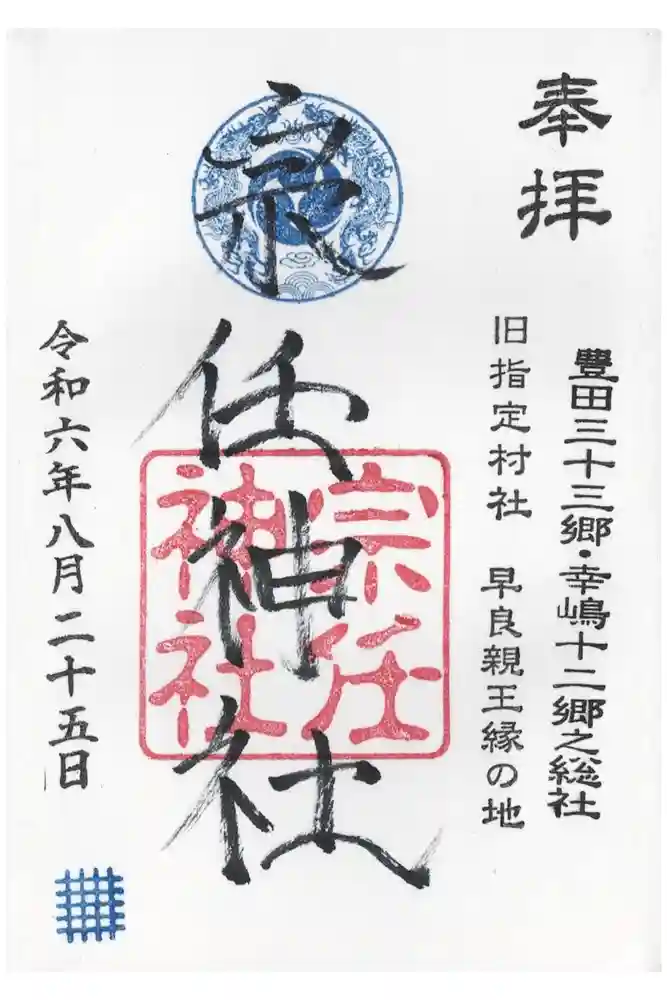 奉拝
豐田三十三郷・幸嶋十二郷之総社
旧指定村社　早良親王縁の地
宗任神社
宗任
神社
令和六年八月二十五日